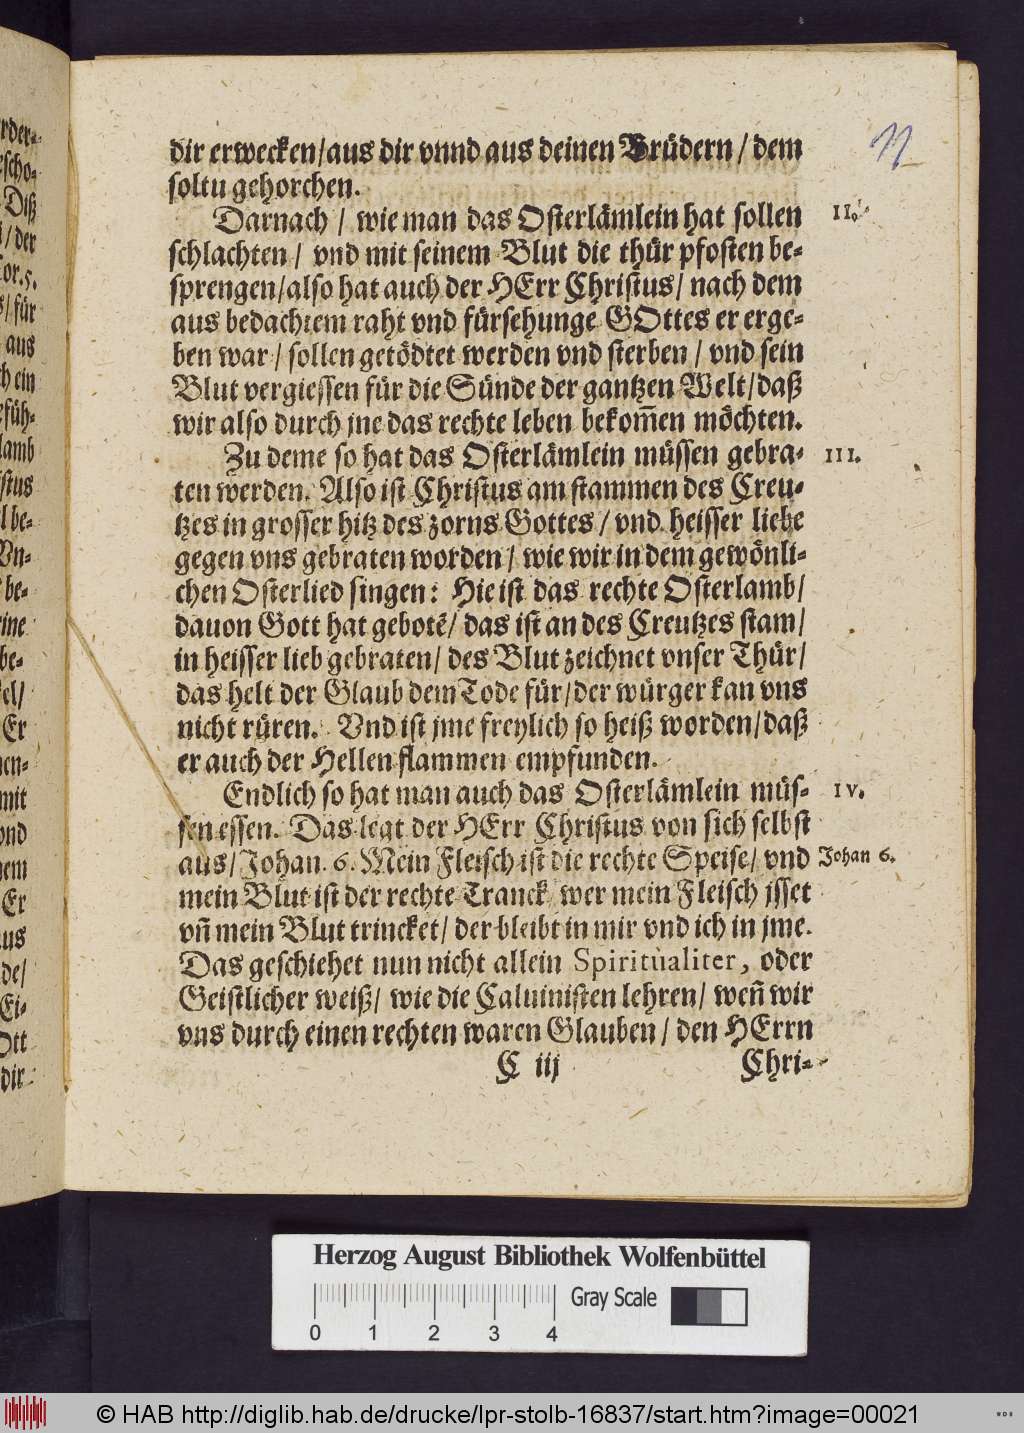 dir erwecken/aus dir vnnd aus deinen Brüdern / dem
soltu gehorchen.
Darnach / wie man das Osterlämlein hat sollen
II.
schlachten / vnd mit seinem Blut die thür pfosten be-
sprengen/also hat auch der HErr Christus/ nach dem
aus bedachtem raht vnd fürsehunge GOttes er erge-
ben war / sollen getödtet werden vnd sterben / vnd sein
Blut vergiessen für die Sünde der gantzen Welt/daß
wir also durch jne das rechte leben bekom̄en möchten.
Zu deme so hat das Osterlämlein müssen gebra-
III.
ten werden. Also ist Christus am stammen des Creu-
tzes in grosser hitz des zorns Gottes / vnd heisser liebe
gegen vns gebraten worden / wie wir in dem gewönli-
chen Osterlied singen: Hie ist das rechte Osterlamb/
dauon Gott hat gebotē/ das ist an des Creutzes stam/
in heisser lieb gebraten/ des Blut zeichnet vnser Thür/
das helt der Glaub dem Tode für/der würger kan vns
nicht rüren. Vnd ist jme freylich so heiß worden/daß
er auch der Hellen flammen empfunden.
Endlich so hat man auch das Osterlämlein müs-
IV.
sen essen. Das legt der HErr Christus von sich selbst
aus/Johan. 6. Mein Fleisch ist die rechte Speise/ vnd
Johan 6.
mein Blut ist der rechte Tranck, wer mein Fleisch jsset
vn̄ mein Blut trincket/ der bleibt in mir vnd ich in jme.
Das geschiehet nun nicht allein Spiritualiter, oder
Geistlicher weiß/ wie die Caluinisten lehren/ wen̄ wir
vns durch einen rechten waren Glauben / den HErrn
C iij
Chri-
Herzog August Bibliothek Wolfenbüttel
Gray Scale
0 1 2 3 4
© HAB http://diglib.hab.de/drucke/lpr-stolb-16837/start.htm?image=00021